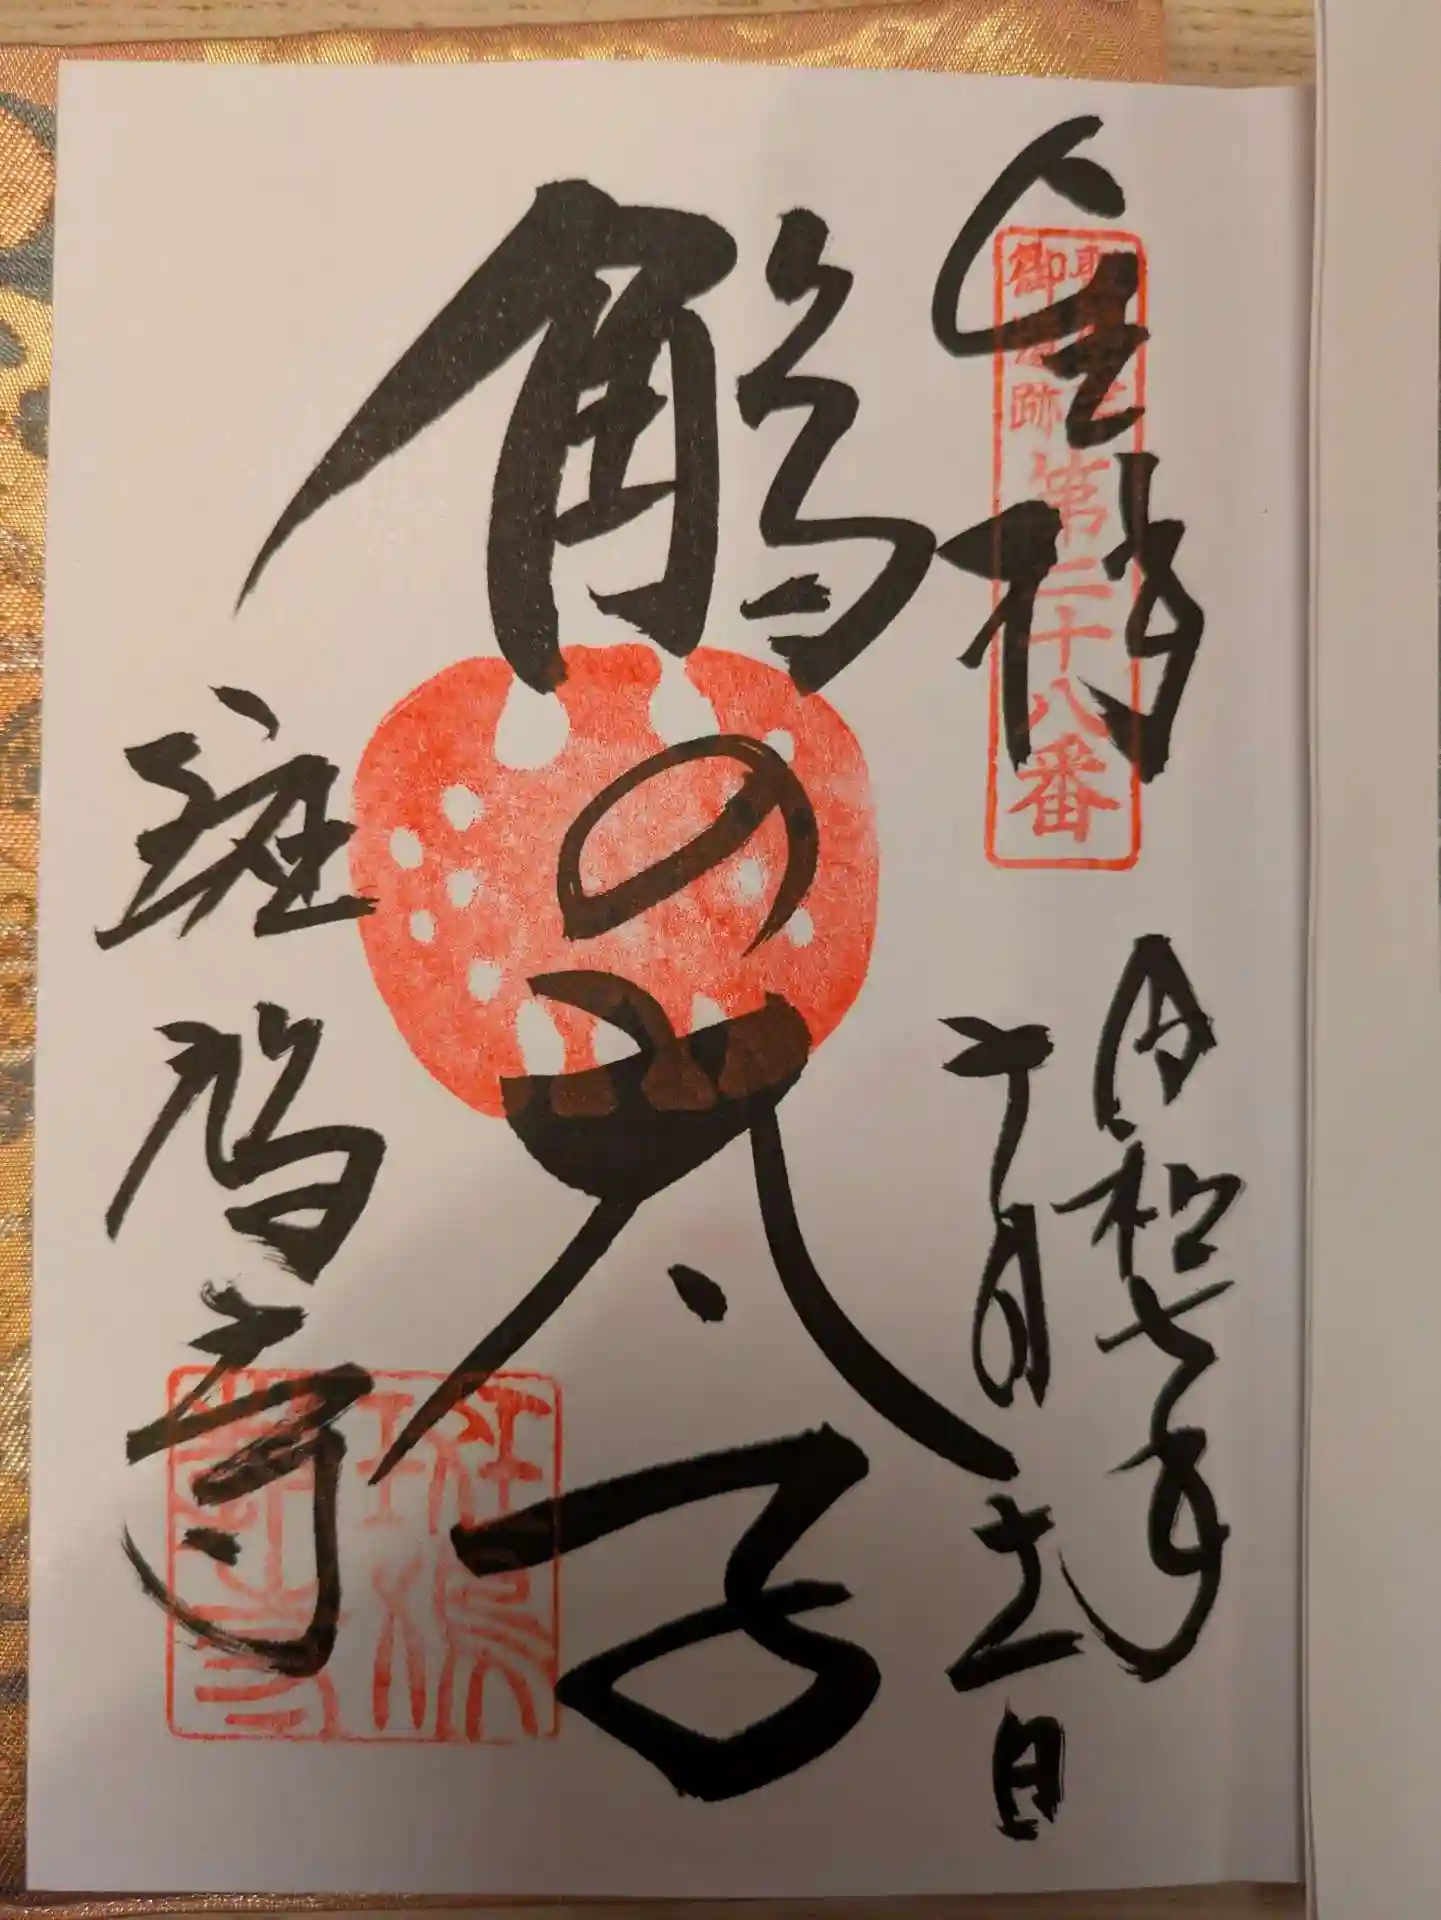 聖徳太子
御遺跡
第二十八番
令和七年
十月十二日
鵤の太子
斑鳩寺
斑鳩寺